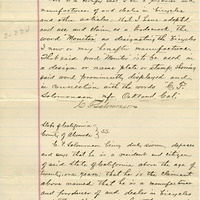 manufacturer of and deals in bicycles
and other articles, that I have adopted
and use and claim as a trademark the
word "Monitor" as designating the bicycles
I now or may hereafter manufacture.
That said word Monitor is to be used in
a design or name plate or stamp showing
said word prominently displayed and
in connection with the words C. F.
Salomonson mfr Oakland Cal.
C. F. Salomonson
State of California
County of Alameda } SS.
C. F. Salomonson being duly sworn, deposes
and says that he is a resident and citizen
of said State of California above the age of
twenty one years that he is the claimant
above named that he is a manufacturer
and producer of and dealer in bicycles